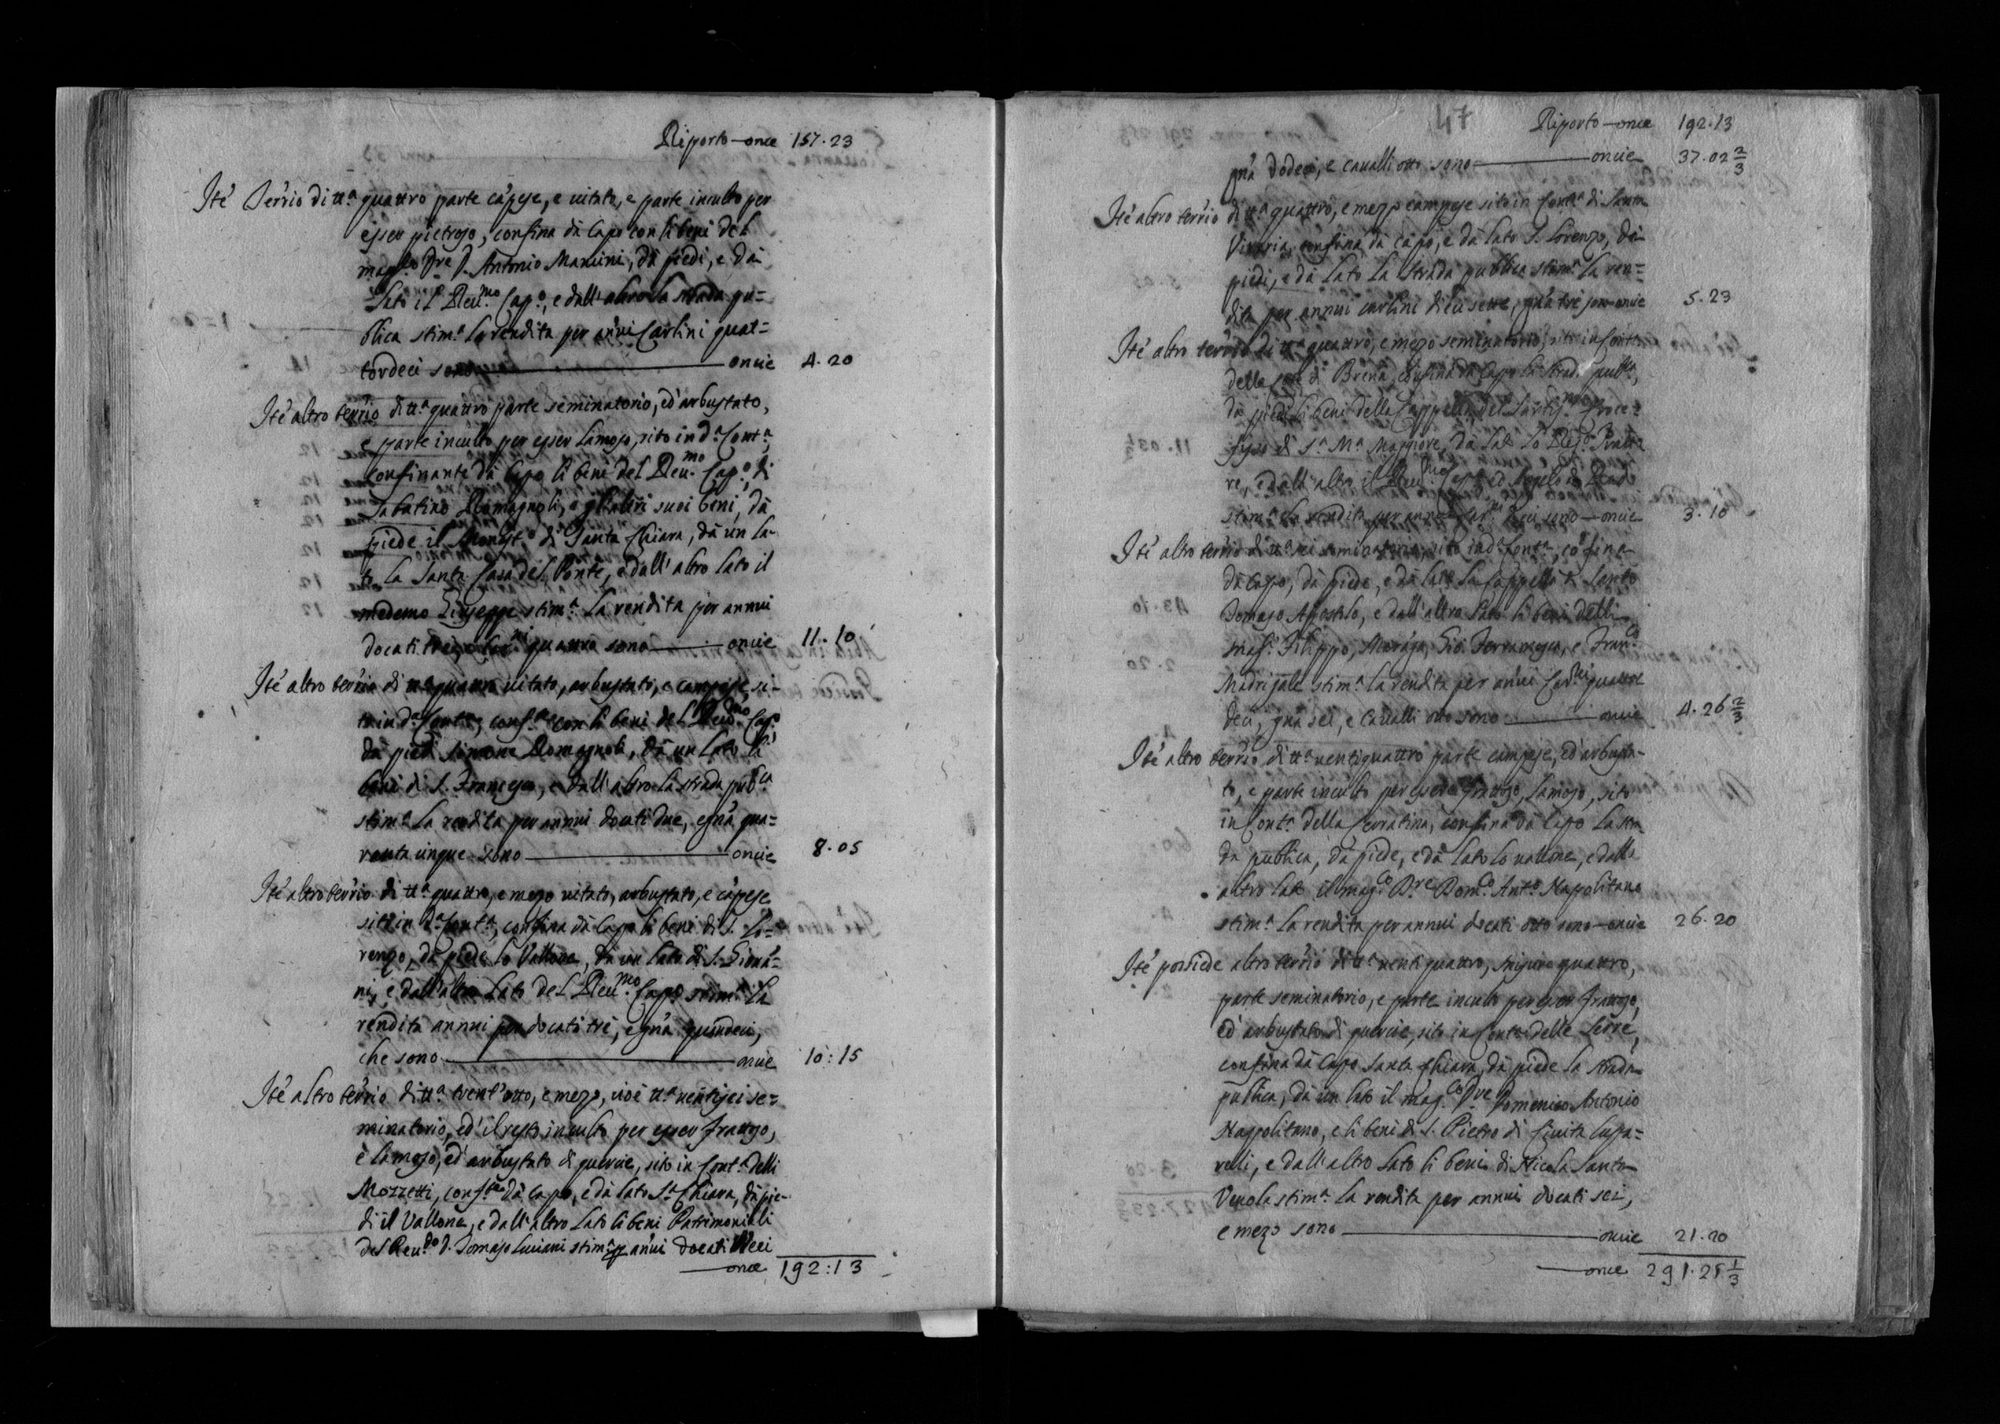 Riporto—once 157.23
Ité Terrio di tt.ª quattro parte cãpese, e vitato, e parte inculto per
esser pietroso, confina da Capo con li beni del
mag.co Dre D. Antonio Mancini, da piedi, e da
lato il Reu.mo Cap.º, e dall'altro la strada pu=
blica stim.ª la rendita per annui Carlini quat=
tordeci sono — oncie 4.20
Ité altro terrio di tt.ª quattro parte seminatorio, ed arbustato,
e parte inculto per esser lamoso, sito in d.ª Cont.ª,
confinante da Capo li beni del Reu.mo Cap.º, di
Sabatino Romagnoli, e gl'altri suoi beni, da
piede il Monast.º di Santa Chiara, da un la=
to la Santa Casa del Ponte, e dall'altro lato il
medemo Giuseppe stim.ª la rendita per annui
docati tre, e Car.ni quattro sono — oncie 11.10
Ité altro terrio di tt.ª quattro vitato, arbustato, e campese si=
to in d.ª Cont.ª, conf.te con li beni del Reu.mo Cap.º
da piedi Simone Romagnoli, da un lato li
beni di S. Francesco, e dall'altro la strada pub.ca
stim.ª la rendita per annui docati due, e gña qua=
ranta cinque sono — oncie 8.05
Ité altro terrio di tt.ª quattro, e mezo vitato, arbustato, e cãpese
sito in d.ª Cont.ª, confina da Capo li beni di S. Lo=
renzo, da piede lo Vallone, da un lato di S. Gioua=
ni, e dall'altro lato del Reu.mo Cap.º stim.ª la
rendita annui per docati tre, e gña quindeci,
che sono — oncie 10:15
Ité altro terrio di tt.ª trent'otto, e mezo, cioè tt.ª ventisei se=
minatorio, ed il resto inculto per esser frattoso,
e lamoso, ed arbustato di quercie, sito in Cont.ª delli
Mozzetti, conf.te da Capo, e da lato S.ta Chiara, da pie=
di il Vallone, e dall'altro lato li beni Patrimoniali
del Reu.do D. Tomaso Luciani stim.ª p annui docati Dieci
— once 192:13
47
Riporto—once 192.13
gña dodeci, e cavalli otto sono — oncie 37.02 2/3
Ité altro terrio di tt.ª quattro, e mezo campese sito in Cont.ª di Santa
confina da Capo, e da lato S. Lorenzo, da
piedi, e da lato la strada publica stim.ª la ren=
dita per annui carlini dieci sette, gña tre sono oncie 5.23
Ité altro terrio di tt.ª quattro, e mezo seminatorio, sito in Cont.ª
della confina da Capo la strada pub.ª,
da piedi li beni della Cappella del Santiss.mo Croce=
fisso di S.ª M.ª Maggiore, da lato lo
re, e dall'altro il Reu.mo Cap.º
stim.ª la rendita per annui Car.ni dieci sono — oncie 3.10
Ité altro terrio di tt.ª sei seminatorio, sito in d.ª Cont.ª, cõfina
da Capo, da piede, e da lato la Cappella di Santo
Tomaso Apostolo, e dall'altro lato li beni delli
mag.ci Filippo, Gio: e Fran.co
Madrigale stim.ª la rendita per annui Car.ni quattor
deci, gña sei, e cavalli otto sono — oncie 4.26 2/3
Ité altro terrio di tt.ª ventiquattro parte campese, ed arbusta=
to, e parte inculto per esser frattoso, lamoso, sito
in Cont.ª della Cerratina, confina da Capo la stra=
da publica, da piede, e da lato lo vallone, e dall'
altro lato il mag.co Dre Dom.co Ant.º Nappolitano
stim.ª la rendita per annui docati otto sono — oncie 26.20
Ité possiede altro terrio di tt.ª venti quattro, quattro,
parte seminatorio, e parte inculto per esser frattoso,
ed arbustato di quercie, sito in Cont.ª delle Serre,
confina da Capo Santa Chiara, da piede la strada
publica, da un lato il mag.co Dre Domenico Antonio
Nappolitano, e li beni di S. Pietro di Civita Lupa=
relli, e dall'altro lato li beni di Nicola Santo
stim.ª la rendita per annui docati sei,
e mezo sono — oncie 21.20
— once 291.25 1/3